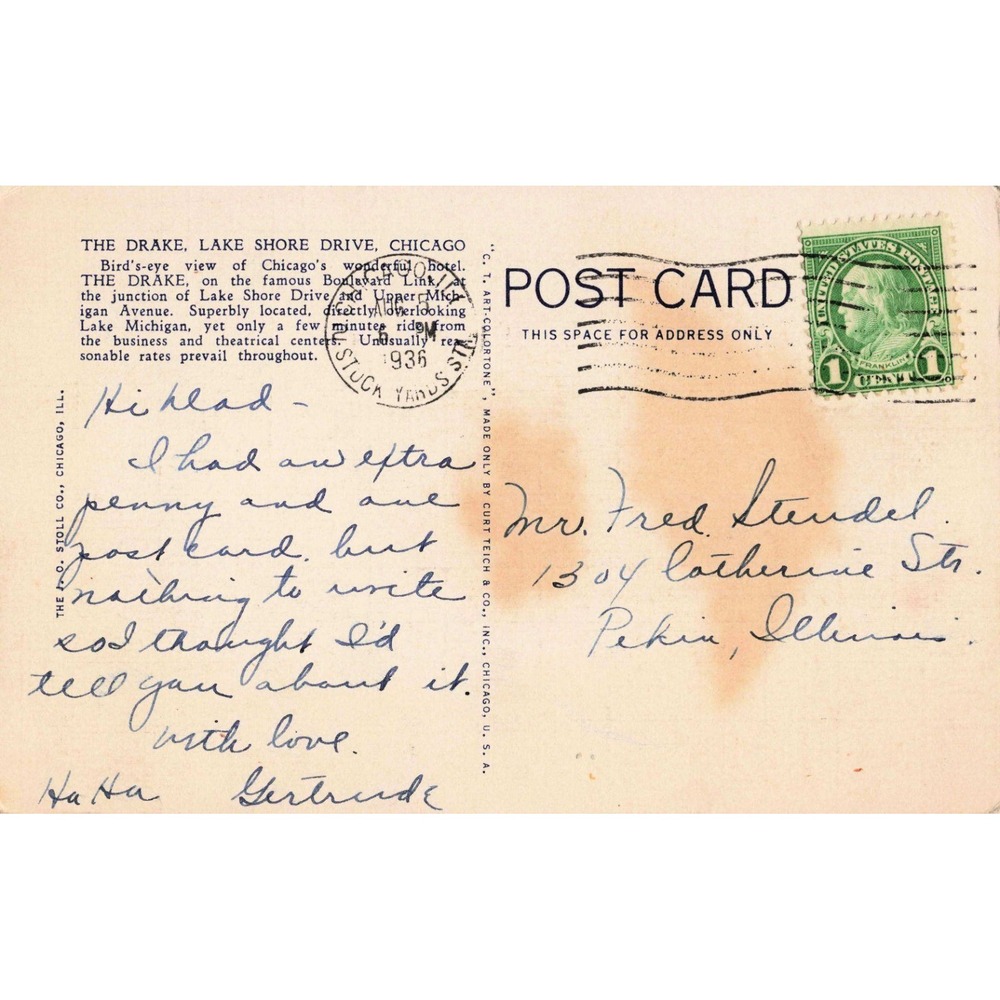 THE DRAKE, LAKE SHORE DRIVE, CHICAGO
Bird's-eye view of Chicago's wonderful hotel.
THE DRAKE, on the famous Boulevard Link, at
the junction of Lake Shore Drive and Upper Mich-
igan Avenue. Superbly located, directly overlooking
Lake Michigan, yet only a few minutes ride from
the business and theatrical center. Unusually rea-
sonable rates prevail throughout.
CHICAGO, ILL.
AUG 5
6 PM
1936
STOCK YARDS STA.
Hi
I had an extra
penny and one
post card. but
nothing to write
so I thought I'd
tell you about it.
with love.
Ha Ha Gertrude
THE STOLL CO., CHICAGO, ILL.
"C. T. ART-COLORTONE", MADE ONLY BY CURT TEICH & CO., INC., CHICAGO, U. S. A.
POST CARD
THIS SPACE FOR ADDRESS ONLY
UNITED STATES POSTAGE
FRANKLIN
1 CENT 1
Mr. Fred Stendel.
1304 Catherine Str.
Pekin, Illinois.